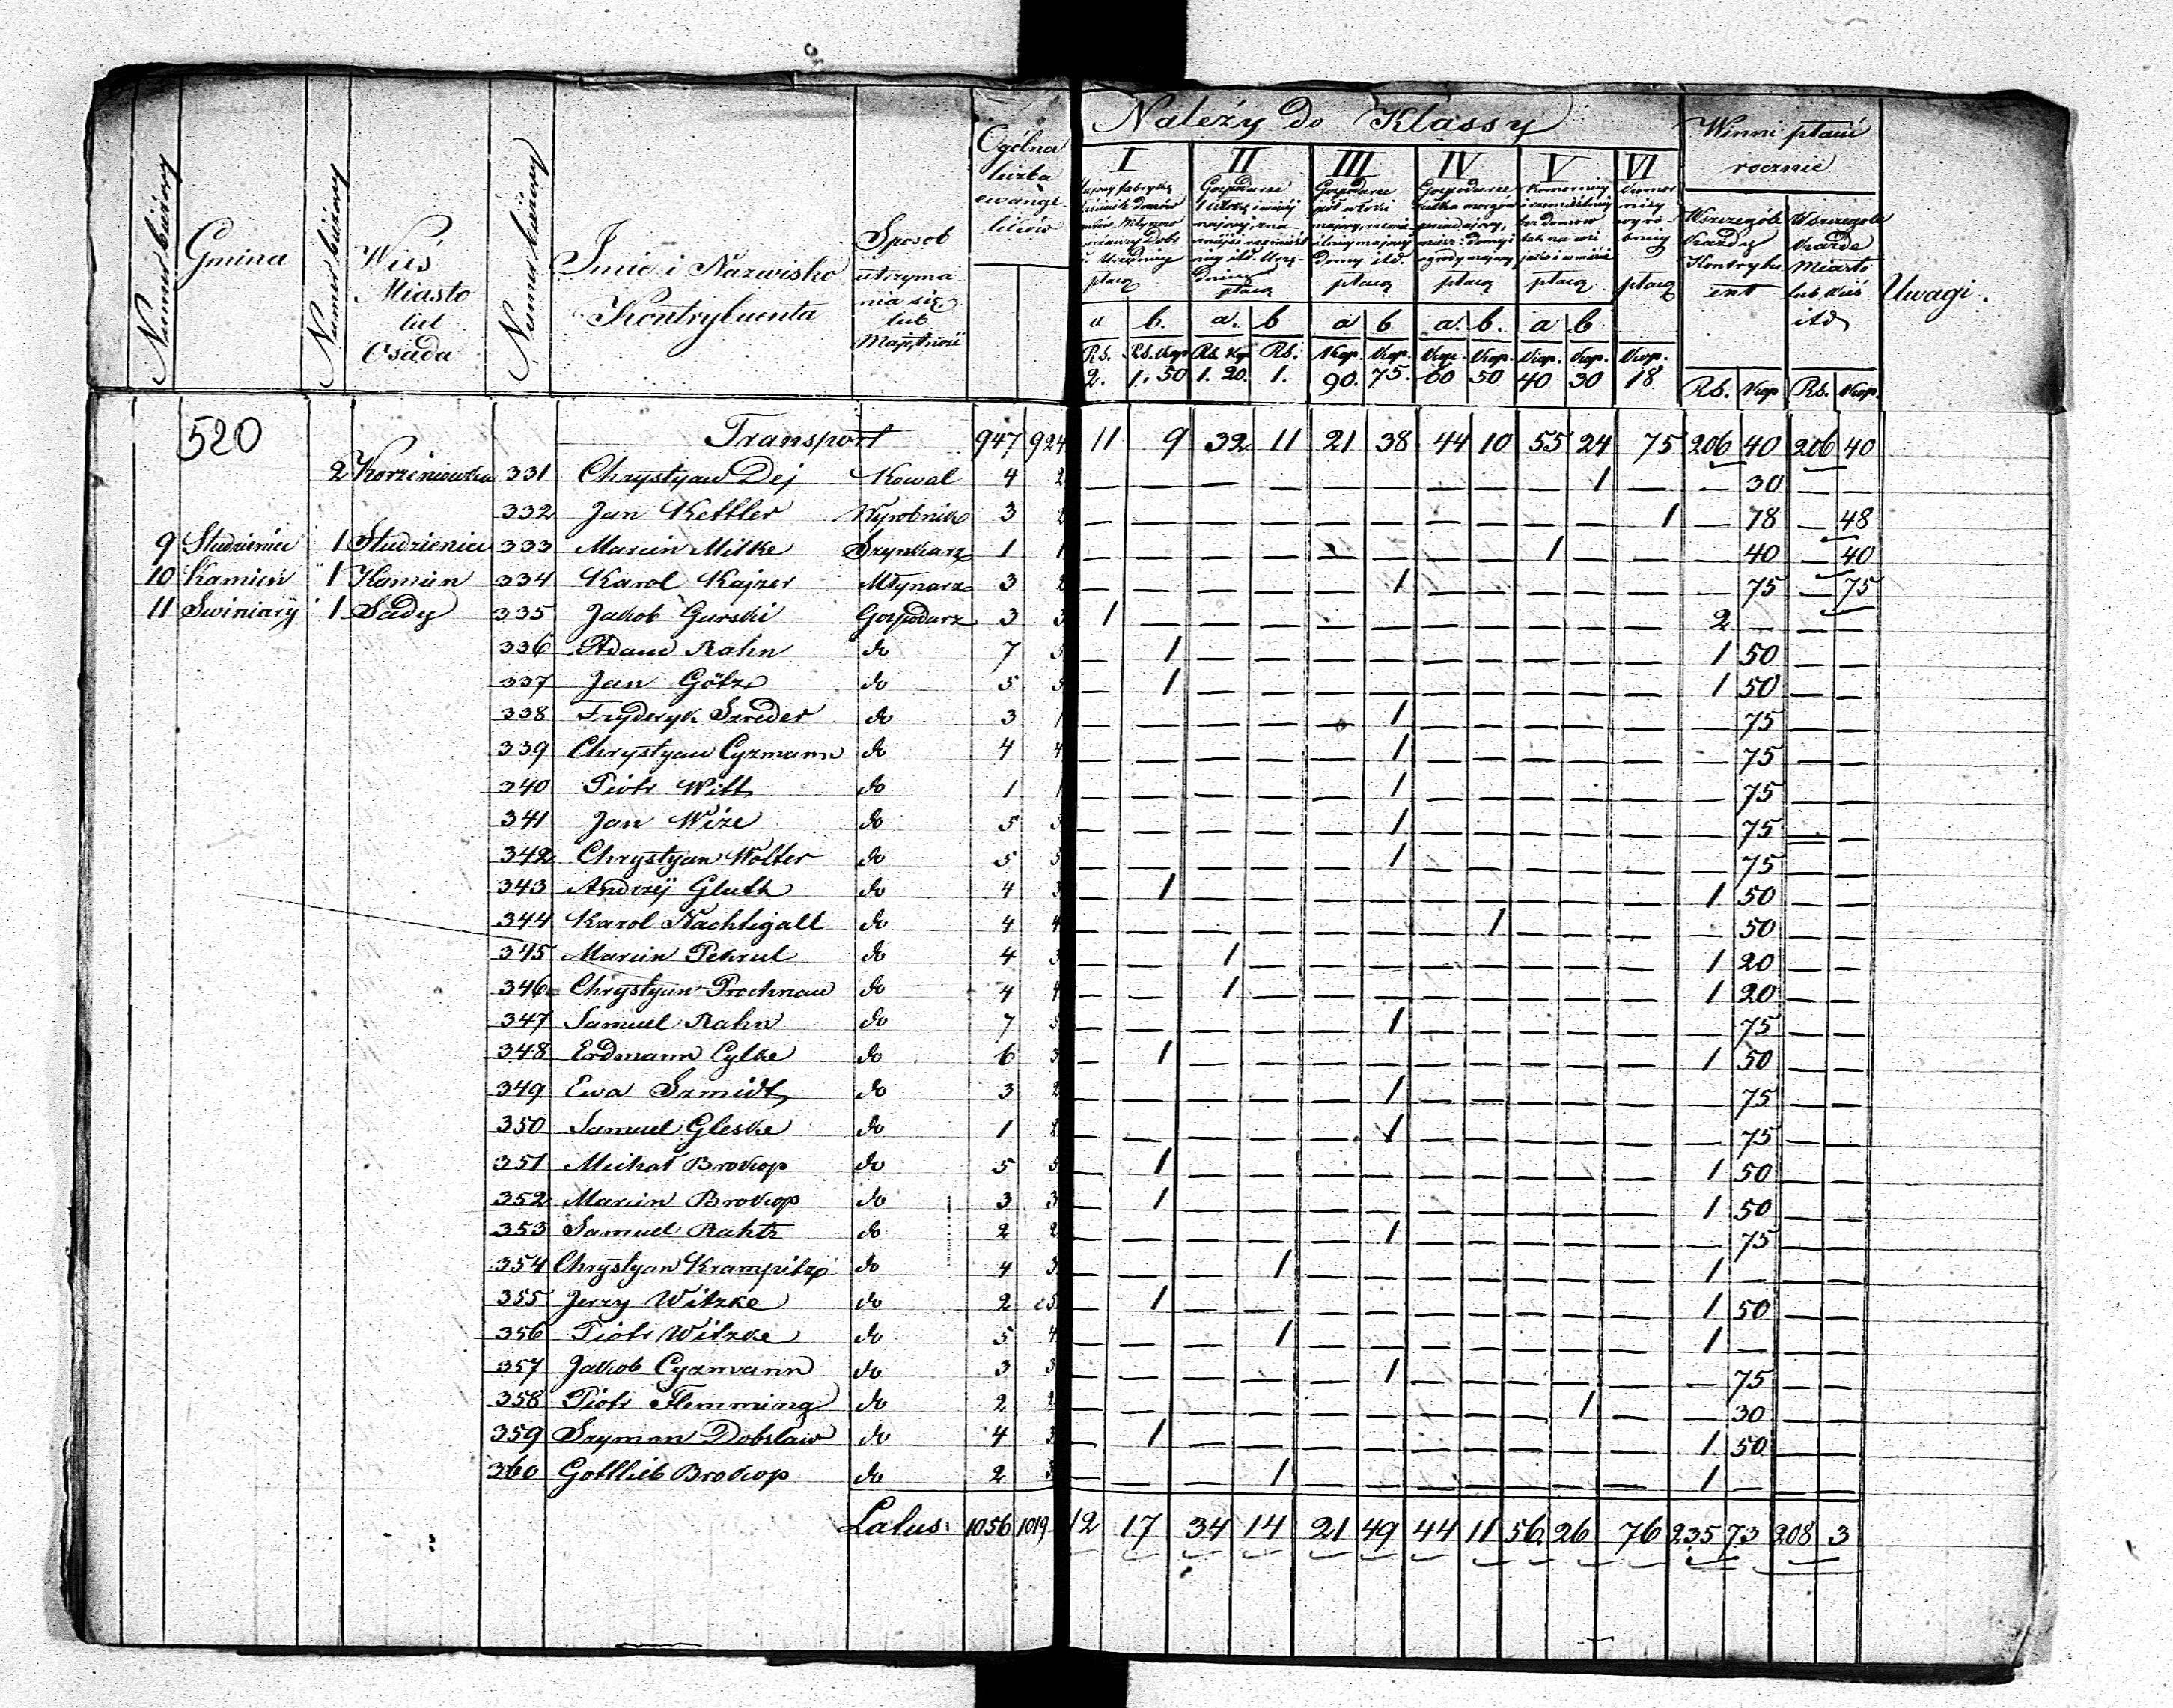 Należy do Klassy
Numer bieżący
Gmina
Numer bieżący
Wieś Miasto lub Osada
Numer bieżący
Imie i Nazwisko Kontrybuenta
Sposob utrzymania się lub Majętność
Ogólna liczba ewangelików
I
II
III
IV
V
VI
płacą płacą płacą płacą płacą płacą
a b. a. b a b a. b. a b
Rs. Rs. Kop Rs. Kop Rs. Kop. Kop. Kop. Kop. Kop. Kop. Kop.
2. 1. 50 1. 20. 1. 90. 75. 60 50 40 30 18
Winni płacić rocznie
Wszczególe każdy Kontrybuent
Wszczególe każde Miasto lub Wieś itd
Rs. Kop Rs. Kop.
Uwagi.
520 Transport 947 924 11 9 32 11 21 38 44 10 55 24 75 206 40 206 40
2 Korzeniowka 331 Chrystyan Dej Kowal 4 2 — — — — — — — — — 1 — — 30 — —
332 Jan Kettler Wyrobnik 3 2 — — — — — — — — — — 1 — 78 — 48
9 Studzieniec 1 Studzieniec 333 Marcin Milke Szynkarz 1 1 — — — — — — — — 1 — — — 40 — 40
10 Kamień 1 Kamien 334 Karol Kajzer Młynarz 3 2 — — — — — 1 — — — — — — 75 — 75
11 Swiniary 1 Sady 335 Jakob Gurski Gospodarz 3 3 1 — — — — — — — — — — 2 — — —
336 Adam Rahn do 7 5 — 1 — — — — — — — — — 1 50 — —
337 Jan Götz do 5 5 — 1 — — — — — — — — — 1 50 — —
338 Fryderyk Szreder do 3 1 — — — — — 1 — — — — — — 75 — —
339 Chrystyan Cyzmann do 4 4 — — — — — 1 — — — — — — 75 — —
340 Piotr Witt do 1 1 — — — — — 1 — — — — — — 75 — —
341 Jan Wize do 5 5 — — — — — 1 — — — — — — 75 — —
342 Chrystyan Wolter do 5 5 — — — — — 1 — — — — — — 75 — —
343 Andrzÿ Gluth do 4 3 — 1 — — — — — — — — — 1 50 — —
344 Karol Nachtigall do 4 4 — — — — — — — 1 — — — — 50 — —
345 Marcin Pekrul do 4 3 — — 1 — — — — — — — — 1 20 — —
346 Chrystyan Prochnau do 4 4 — — 1 — — — — — — — — 1 20 — —
347 Samuel Rahn do 7 5 — — — — — 1 — — — — — — 75 — —
348 Erdmann Cylke do 6 3 — 1 — — — — — — — — — 1 50 — —
349 Ewa Szmidt do 3 2 — — — — — 1 — — — — — — 75 — —
350 Samuel Gleske do 1 2 — — — — — 1 — — — — — — 75 — —
351 Michał Brokop do 5 5 — 1 — — — — — — — — — 1 50 — —
352 Marcin Brokop do 3 3 — 1 — — — — — — — — — 1 50 — —
353 Samuel Rahtz do 2 2 — — — — — 1 — — — — — — 75 — —
354 Chrystyan Krampitz do 4 3 — — — 1 — — — — — — — 1 — — —
355 Jerzy Witzke do 2 5 — 1 — — — — — — — — — 1 50 — —
356 Piotr Witzke do 5 4 — — — 1 — — — — — — — 1 — — —
357 Jakob Cyzmann do 3 3 — — — — — 1 — — — — — — 75 — —
358 Piotr Flemming do 2 2 — — — — — — — — — 1 — — 30 — —
359 Szyman Dobslaw do 4 3 — 1 — — — — — — — — — 1 50 — —
360 Gottlieb Brokop do 2 3 — — — 1 — — — — — — — 1 — — —
Latus: 1056 1019 12 17 34 14 21 49 44 11 56 26 76 235 73 208 3